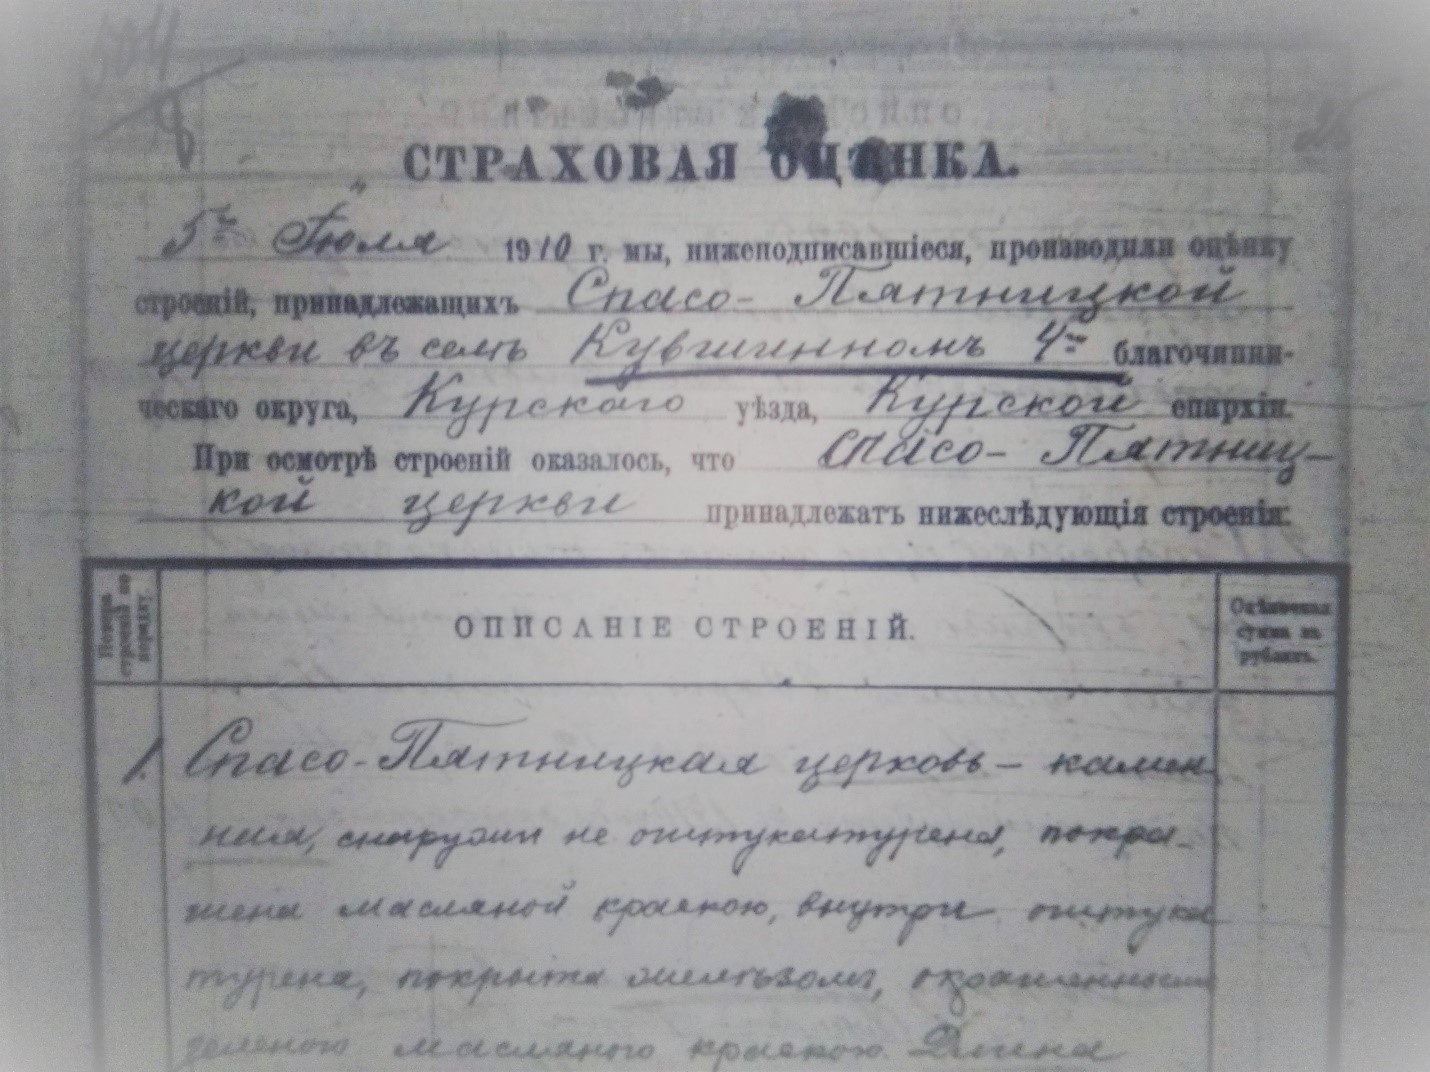 504
8
СТРАХОВАЯ ОЦѢНКА.
5го Іюля 1910 г. мы, нижеподписавшіеся, производили оцѣнку
строеній, принадлежащихъ Спасо-Пятницкой
церкви въ селѣ Кувшинномъ 4го благочинни-
ческаго округа, Курскаго уѣзда, Курской епархіи.
При осмотрѣ строеній оказалось, что Спасо-Пятниц-
кой церкви принадлежатъ нижеслѣдующія строенія:
Номера строеній по порядку.
ОПИСАНІЕ СТРОЕНІЙ.
Оцѣночная сумма въ рубляхъ.
1. Спасо-Пятницкая церковь – камен
ная, снаружи не оштукатурена, покра-
шена масляной краскою, внутри оштука
турена, покрыта желѣзомъ, окрашеннымъ
зеленого масляного краскою. Длина